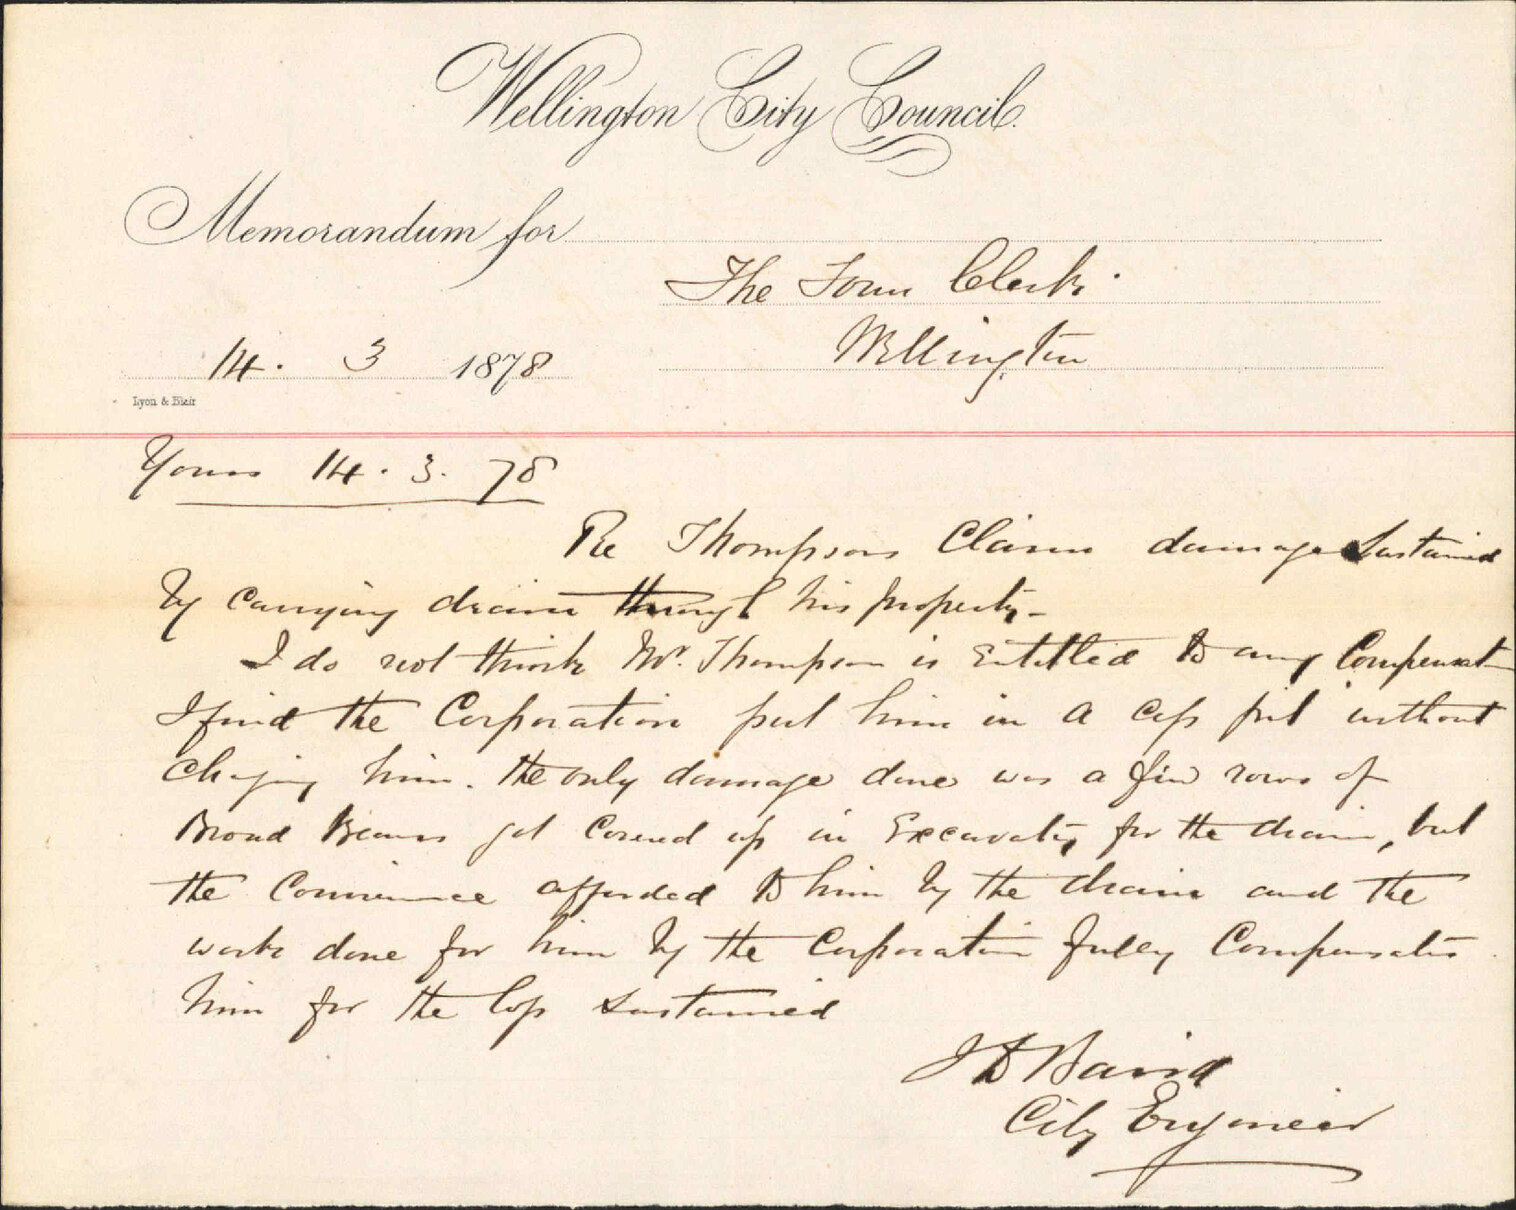 Wellington City Council.
Memorandum for
The Town Clerk.
Wellington
14. 3 1878
Lyon & Blair
Yours 14. 3. 78
Re Thompsons Claim damage Sustained
by carrying drain through his property -
I do not think Mr. Thompson is Entitled to any Compensat
I find the Corporation put him in a cess pit without
Charging him. the only damage done was a few rows of
Broad Beans got Covered up in Excavating for the drain, but
the Convenience afforded to him by the drain and the
work done for him by the Corporation fully Compensates
him for the loss sustained
J D Baird
City Engineer